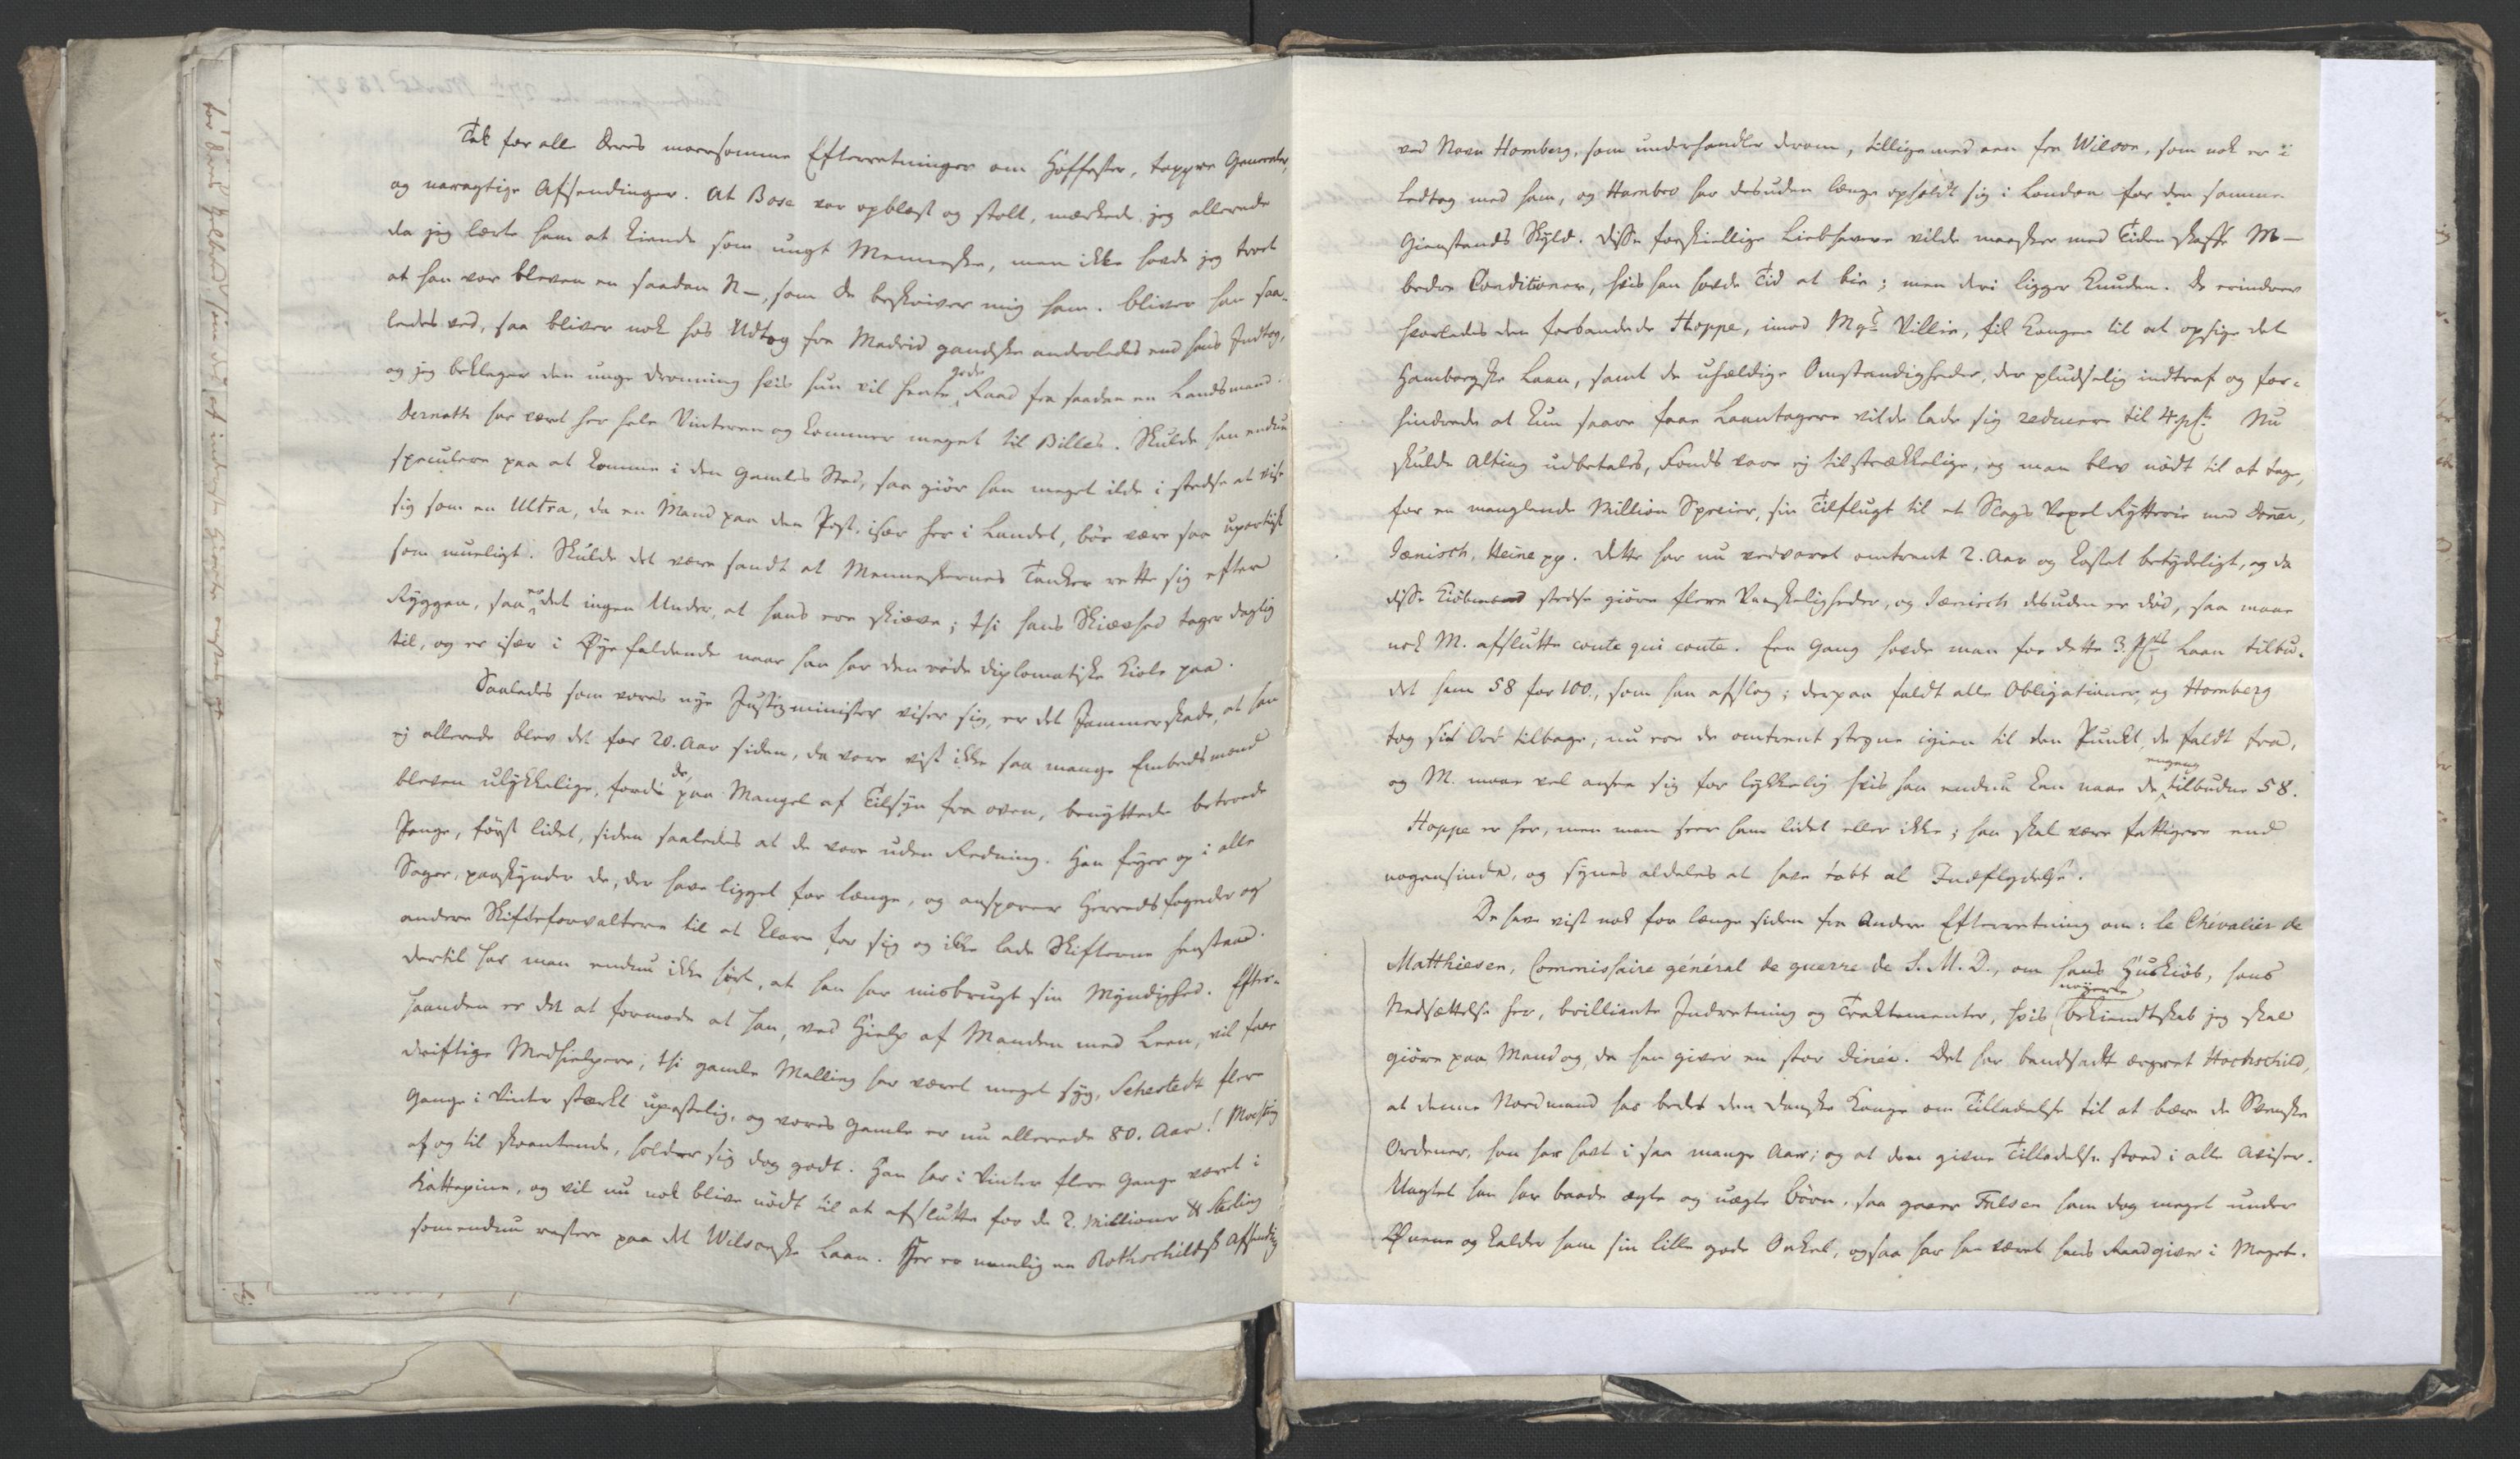 Tak for alle Deres moersomme Efterretninger om Hoffester, tappre Generaler,
og naragtige Afsendinger. At Bose var opblæst og stolt, mærkede jeg allerede
da jeg lærte ham at kiende som ungt Menneske, men ikke havde jeg troet
at han var bleven en saadan N—, som De beskriver mig ham. bliver han saa-
ledes ved, saa bliver nok hans Udtog fra Madrid gandske anderledes end hans Indtog,
og jeg beklager den unge Dronning hvis hun vil hente gode Raad fra saadan en Landsmand.
Dernath har været her hele Vinteren og kommer meget til Billes. Skulde han endnu
speculere paa at komme i den Gamles Sted, saa giør han meget ilde i stedse at vise
sig som en Ultra, da en Mand paa den Post, især her i Landet, bør være saa upartisk
som mueligt. Skulde det være sandt at Menneskernes Tanker rette sig efter
Ryggen, saa er det ingen Under, at hans ere skiæve; thi hans Skiævhed tager daglig
til, og er især i Øyefaldende naar han har den røde diplomatiske Kiole paa.
Saaledes som vores nye Justizminister viser sig, er det Jammerskade, at han
ej allerede blev det for 20. Aar siden, da vare vist ikke saa mange Embedsmænd
bleven ulykkelige, fordi de, paa Mangel af Tilsyn fra oven, benyttede betroede
Penge, først lidet, siden saaledes at de vare uden Redning. Han feyer op i alle
Sager, paaskynder de, der have ligget for længe, og ansporer Herredsfogeder og
andere Skifteforvaltere til at klare for sig og ikke lade Skifterne henstaae.
Dertil har man endnu ikke hørt, at han har misbrugt sin Myndighed. Efter-
haanden er det at formode at han, ved Hielp af Manden med Leen, vil faae
driftige Medhielpere; thi gamle Malling har været meget syg, Sehestedt flere
Gange i Vinter stærkt upasselig, og vores Gamle er nu allerede 80. Aar! Møsting
af og til skrantende, holder sig dog godt. Han har i Vinter flere Gange været i
Kattepine, og vil nu nok blive nødt til at afslutte for de 2. Millioner ℔ Sterling
som endnu restere paa det Wilsonske Laan. Her er nemlig en Rothschildsk Afsending
ved Navn Homberg, som underhandler derom, tilligemed een fra Wilson, som nok er i
Ledtog med ham, og Hambro har desuden længe opholdt sig i London for den samme
Gienstands Skyld. Disse forskiellige Liebhavere vilde maaskee med Tiden skaffe M—
bedre Conditioner, hvis han havde Tid at bie; men deri ligger Knuden. De erindrer
hvorledes den forbandede Hoppe, imod Villie, fik Kongen til at opsige det
Hambergske Laan, samt de uheldige Omstændigheder, der pludselig indtraf og for-
hindrede at kun saare faae Laantagere vilde lade sig reducere til 4 pCt. Nu
skulde Alting udbetales, Fonds vare ej tilstrækkelige, og man blev nødt til at tage,
for en manglende Million Specier, sin Tilflugt til et Slags Vexel Rytterie med Doner,
Jænisch, Heine pp. Dette har nu vedvaret omtrent 2. Aar og kostet betydeligt, og da
disse Kiøbmænd stedse giøre flere Vanskeligheder, og Jænisch desuden er død, saa maae
nok M. afslutte coute qui coute. Een Gang havde man for dette 3. pCts Laan tilbu-
det ham 58 for 100., som han afslog; derpaa faldt alle Obligationer, og Homberg
tog sit Ord tilbage; nu ere de omtrent stegne igien til den Punkt, de faldt fra,
og M. maae vel ansee sig for lykkelig hvis han endnu kan naae de engang tilbudne 58.
Hoppe er her, men man seer ham lidet eller ikke; han skal være fattigere end
nogensinde, og synes aldeles at have tabt al Indflydelse.
De have vist nok for længe siden fra Andre Efterretning om: le Chevalier de
Matthiesen, Commissaire général de guerre de S. M. D., om hans Huuskiøb, hans
Nedsættelse her, brilliante Indretning og Traktementer, hvis nøyere bekiendtskab jeg skal
giøre paa Mandag, da han giver en stor Dinée. Det har bandsadt ærgret Hochschild,
at denne Nordmand har bedet den danske Konge om Tilladelse til at bære de Svenske
Ordener, han har havt i saa mange Aar; og at den givne Tilladelse stoed i alle Aviser.
Uagtet han har baade ægte og uægte Børn, saa gaaer Falsen ham dog meget under
Øynene og kalder ham sin lille gode Onkel, ogsaa har han været hans Raadgiver i Meget.